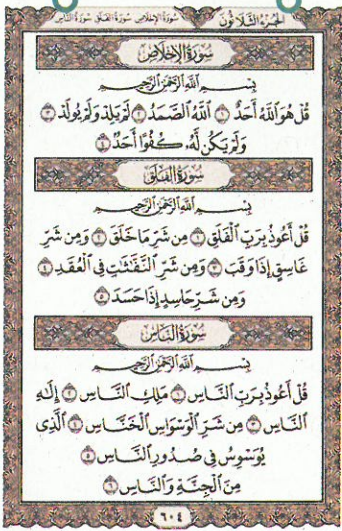 الجزء الثلاثون سورة الإخلاص سورة الفلق سورة الناس
سورة الإخلاص
بِسْمِ ٱللَّهِ ٱلرَّحْمَٰنِ ٱلرَّحِيمِ
قُلْ هُوَ ٱللَّهُ أَحَدٌ ١ ٱللَّهُ ٱلصَّمَدُ ٢ لَمْ يَلِدْ وَلَمْ يُولَدْ ٣
وَلَمْ يَكُن لَّهُۥ كُفُوًا أَحَدٌۢ ٤
سورة الفلق
بِسْمِ ٱللَّهِ ٱلرَّحْمَٰنِ ٱلرَّحِيمِ
قُلْ أَعُوذُ بِرَبِّ ٱلْفَلَقِ ١ مِن شَرِّ مَا خَلَقَ ٢ وَمِن شَرِّ
غَاسِقٍ إِذَا وَقَبَ ٣ وَمِن شَرِّ ٱلنَّفَّٰثَٰتِ فِى ٱلْعُقَدِ ٤
وَمِن شَرِّ حَاسِدٍ إِذَا حَسَدَ ٥
سورة الناس
بِسْمِ ٱللَّهِ ٱلرَّحْمَٰنِ ٱلرَّحِيمِ
قُلْ أَعُوذُ بِرَبِّ ٱلنَّاسِ ١ مَلِكِ ٱلنَّاسِ ٢ إِلَٰهِ
ٱلنَّاسِ ٣ مِن شَرِّ ٱلْوَسْوَاسِ ٱلْخَنَّاسِ ٤ ٱلَّذِى
يُوَسْوِسُ فِى صُدُورِ ٱلنَّاسِ ٥
مِنَ ٱلْجِنَّةِ وَٱلنَّاسِ ٦
٦٠٤